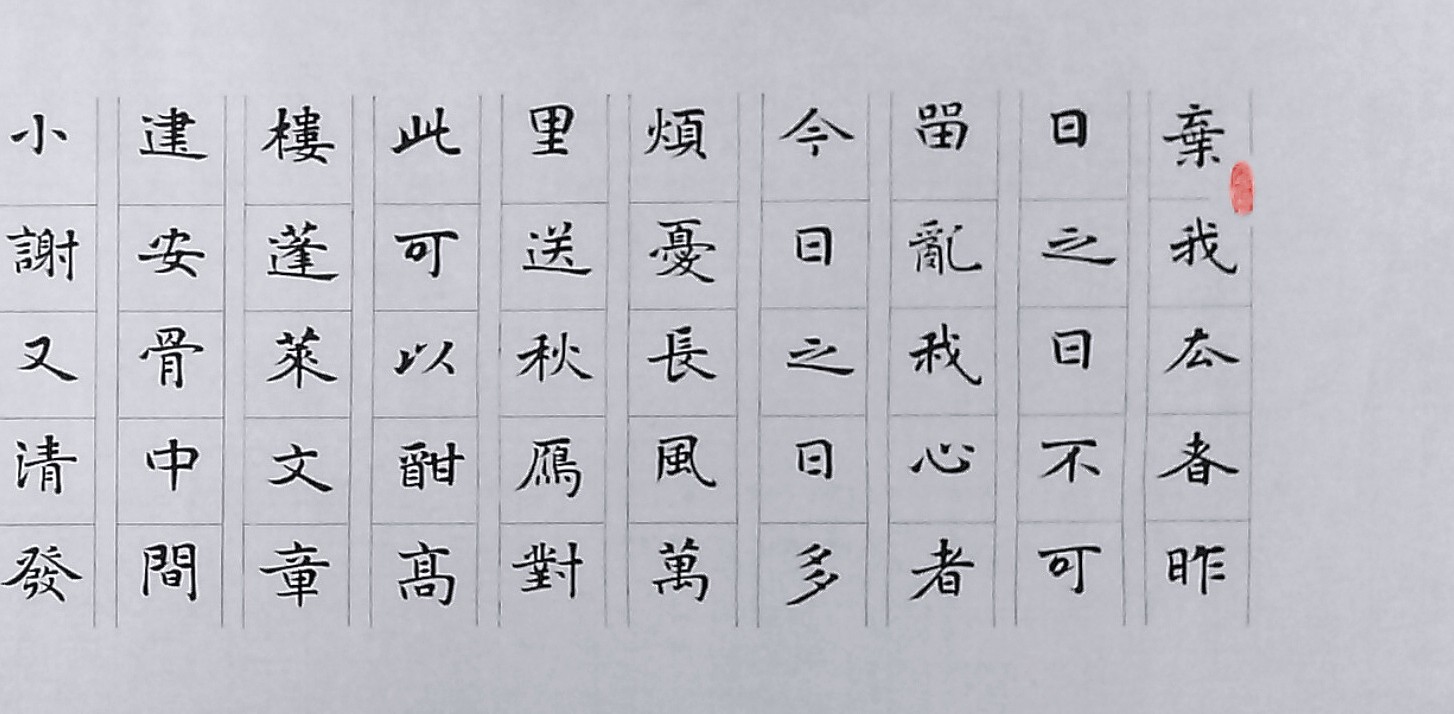 棄我去者昨
日之日不可
留亂我心者
今日之日多
煩憂長風萬
里送秋鴈對
此可以酣高
樓蓬萊文章
建安骨中間
小謝又清發